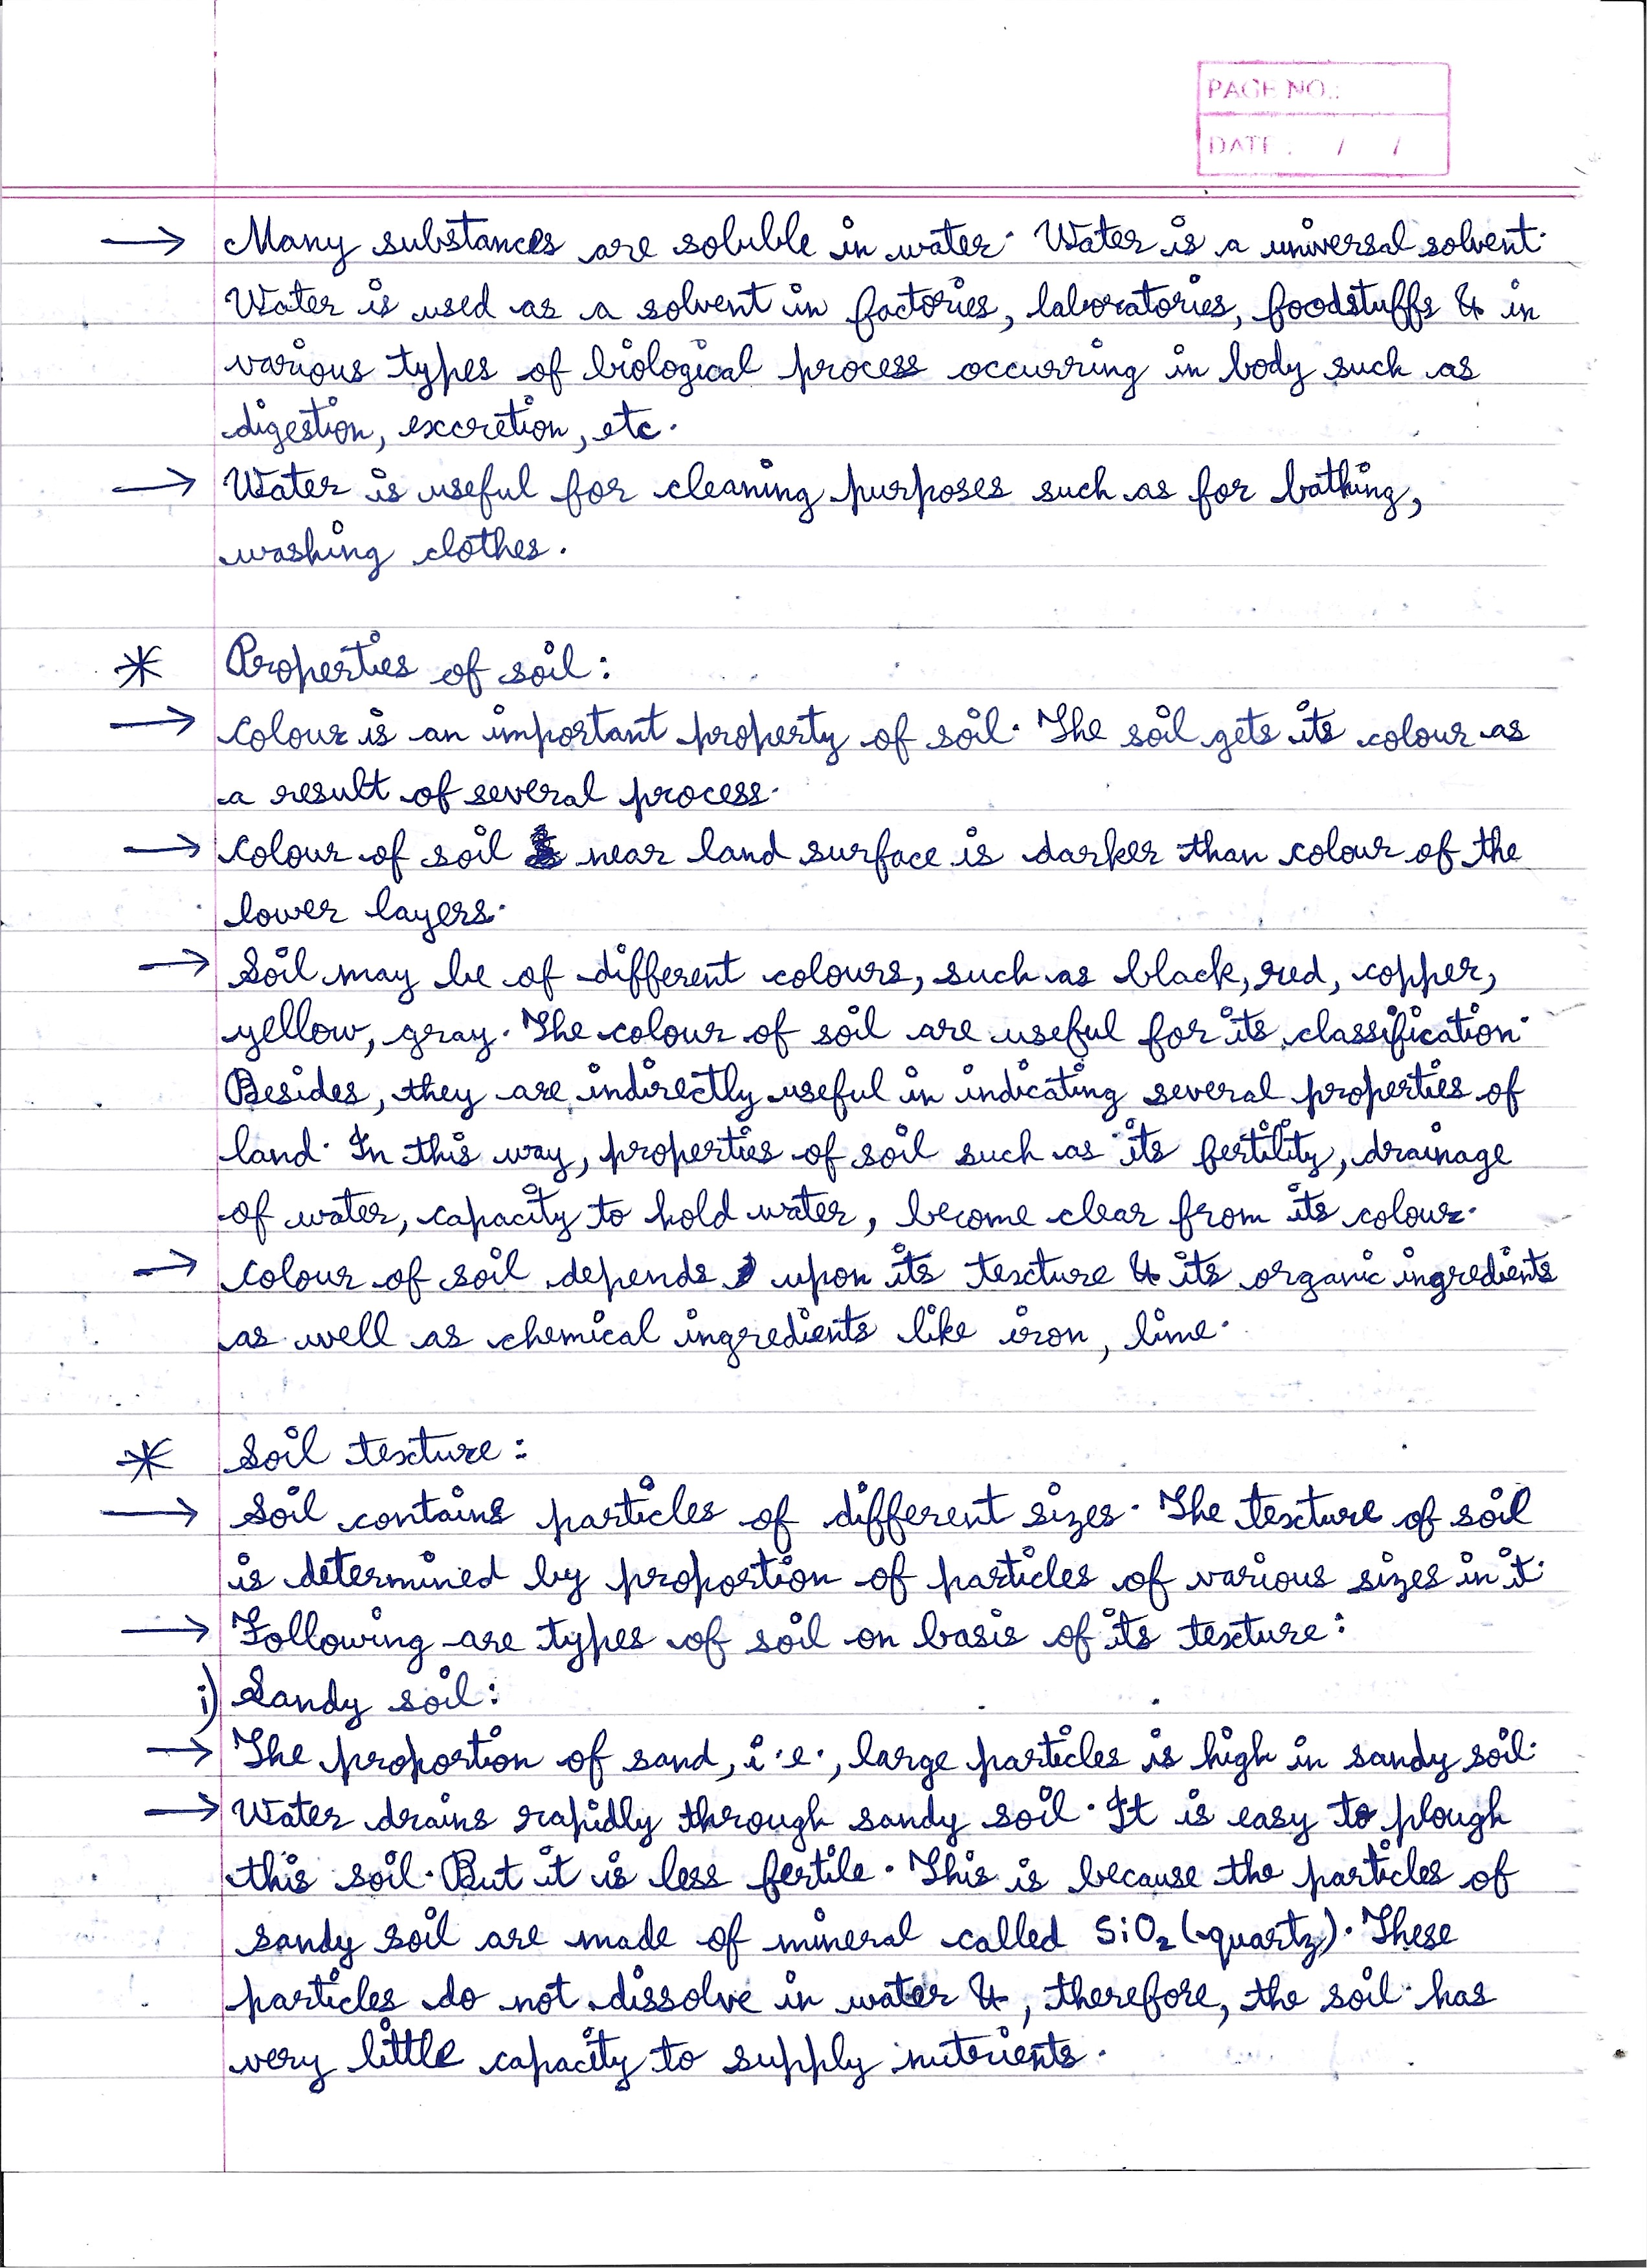 PAGE NO.:
DATE : / /
→ Many substances are soluble in water. Water is a universal solvent.
Water is used as a solvent in factories, laboratories, foodstuffs & in
various types of biological process occurring in body such as
digestion, excretion, etc.
→ Water is useful for cleaning purposes such as for bathing,
washing clothes.
* Properties of soil:
→ Colour is an important property of soil. The soil gets its colour as
a result of several process.
→ Colour of soil near land surface is darker than colour of the
lower layers.
→ Soil may be of different colours, such as black, red, copper,
yellow, gray. The colour of soil are useful for its classification.
Besides, they are indirectly useful in indicating several properties of
land. In this way, properties of soil such as its fertility, drainage
of water, capacity to hold water, become clear from its colour.
→ Colour of soil depends upon its texture & its organic ingredients
as well as chemical ingredients like iron, lime.
* Soil texture:
→ Soil contains particles of different sizes. The texture of soil
is determined by proportion of particles of various sizes in it.
→ Following are types of soil on basis of its texture:
i) Sandy soil:
→ The proportion of sand, i.e., large particles is high in sandy soil.
→ Water drains rapidly through sandy soil. It is easy to plough
this soil. But it is less fertile. This is because the particles of
sandy soil are made of mineral called SiO₂ (quartz). These
particles do not dissolve in water &, therefore, the soil has
very little capacity to supply nutrients.